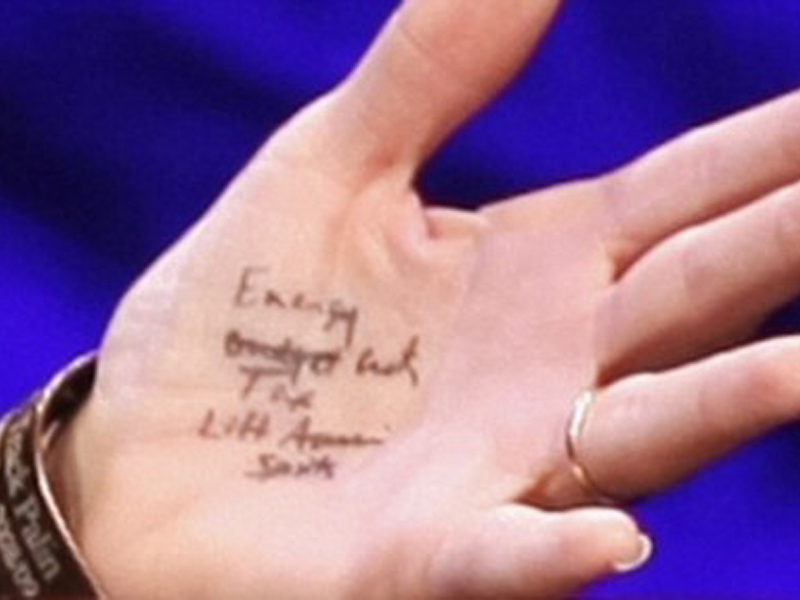 Energy
Budget cuts
Tax
Lift American
Spirits